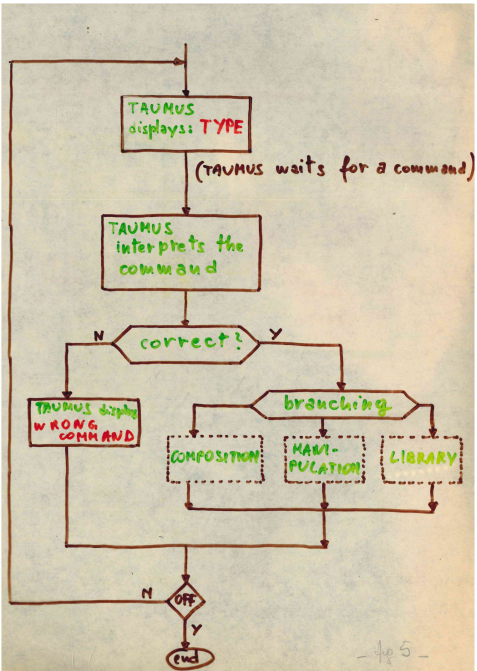 TAUMUS
displays: TYPE
(TAUMUS waits for a command)
TAUMUS
interprets the
command
correct?
N
Y
TAUMUS display
WRONG
COMMAND
branching
COMPOSITION
MANI-
PULATION
LIBRARY
N
OFF
Y
end
_ fig 5 _